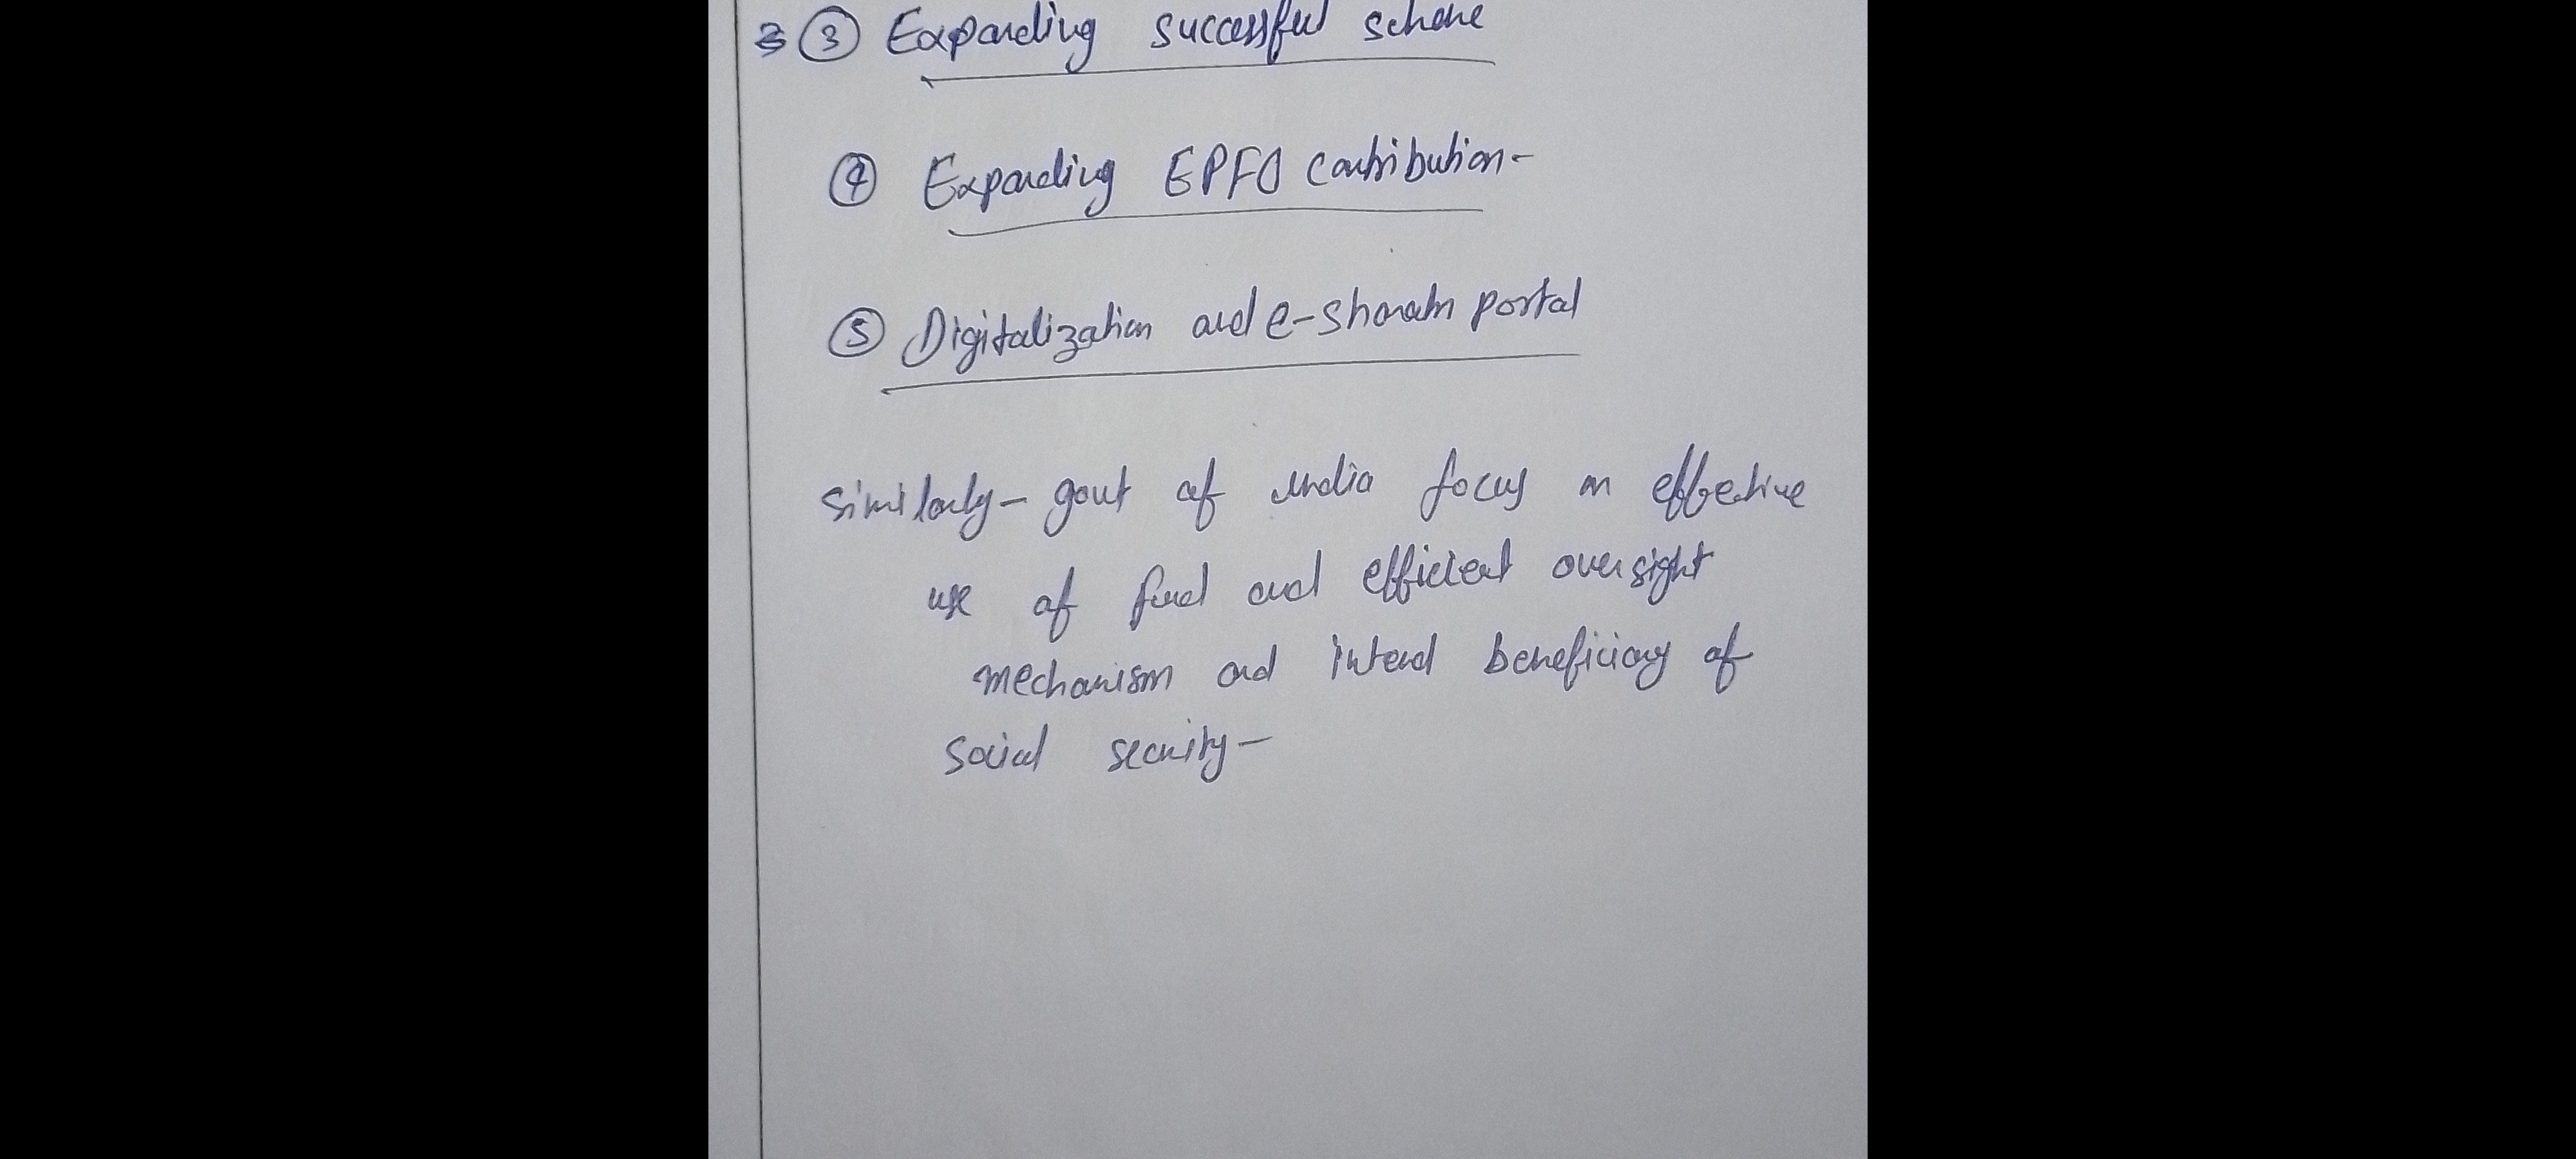 3 ③ Expanding successful scheme
④ Expanding EPFO contribution-
⑤ Digitalization and e-Shram portal
Similarly- govt of India focus on effective
use of fund and efficient oversight
mechanism and intend beneficiary of
Social security-